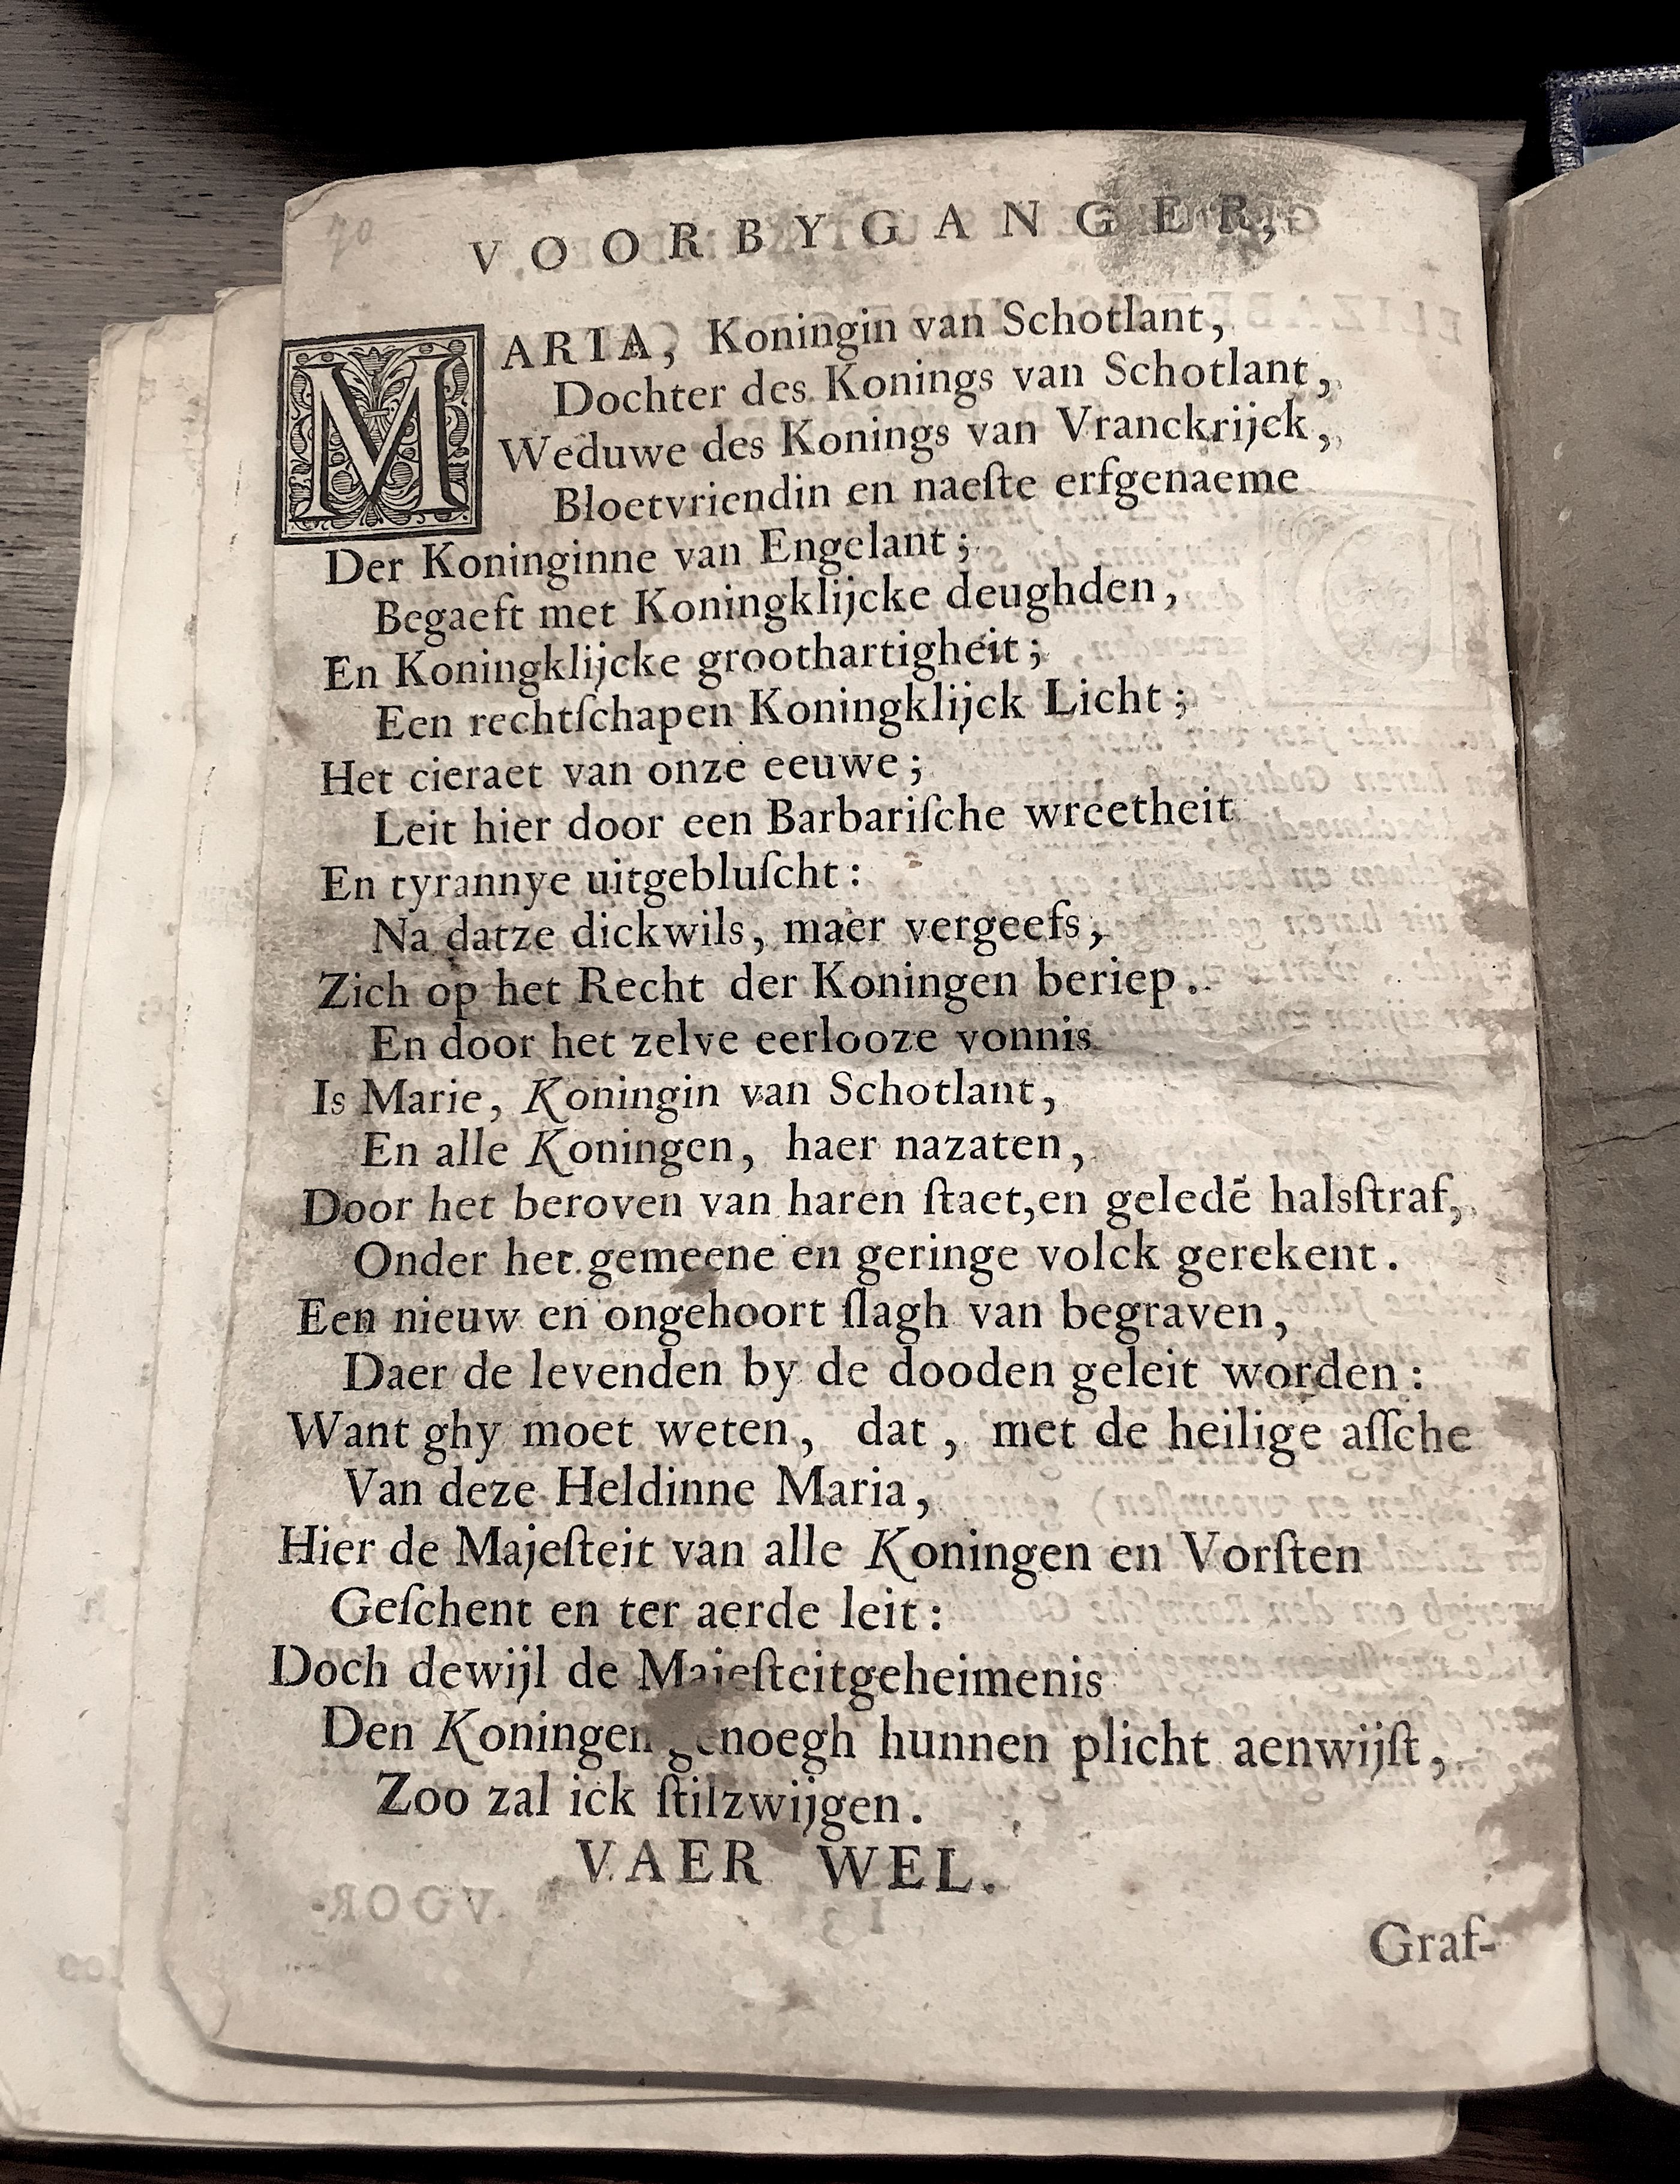 70
VOORBYGANGER,
MARIA, Koningin van Schotlant,
Dochter des Konings van Schotlant,
Weduwe des Konings van Vranckrijck,
Bloetvriendin en naeſte erfgenaeme
Der Koninginne van Engelant;
Begaeft met Koningklijcke deughden,
En Koningklijcke groothartigheit;
Een rechtſchapen Koningklijck Licht;
Het cieraet van onze eeuwe;
Leit hier door een Barbariſche wreetheit
En tyrannye uitgebluſcht:
Na datze dickwils, maer vergeefs,
Zich op het Recht der Koningen beriep.
En door het zelve eerlooze vonnis
Is Marie, Koningin van Schotlant,
En alle Koningen, haer nazaten,
Door het beroven van haren ſtaet, en geledē halsſtraf,
Onder het gemeene en geringe volck gerekent.
Een nieuw en ongehoort ſlagh van begraven,
Daer de levenden by de dooden geleit worden:
Want ghy moet weten, dat, met de heilige aſſche
Van deze Heldinne Maria,
Hier de Majeſteit van alle Koningen en Vorſten
Geſchent en ter aerde leit:
Doch dewijl de Majeſteitgeheimenis
Den Koningen genoegh hunnen plicht aenwijſt,
Zoo zal ick ſtilzwijgen.
VAER WEL.
Graf-